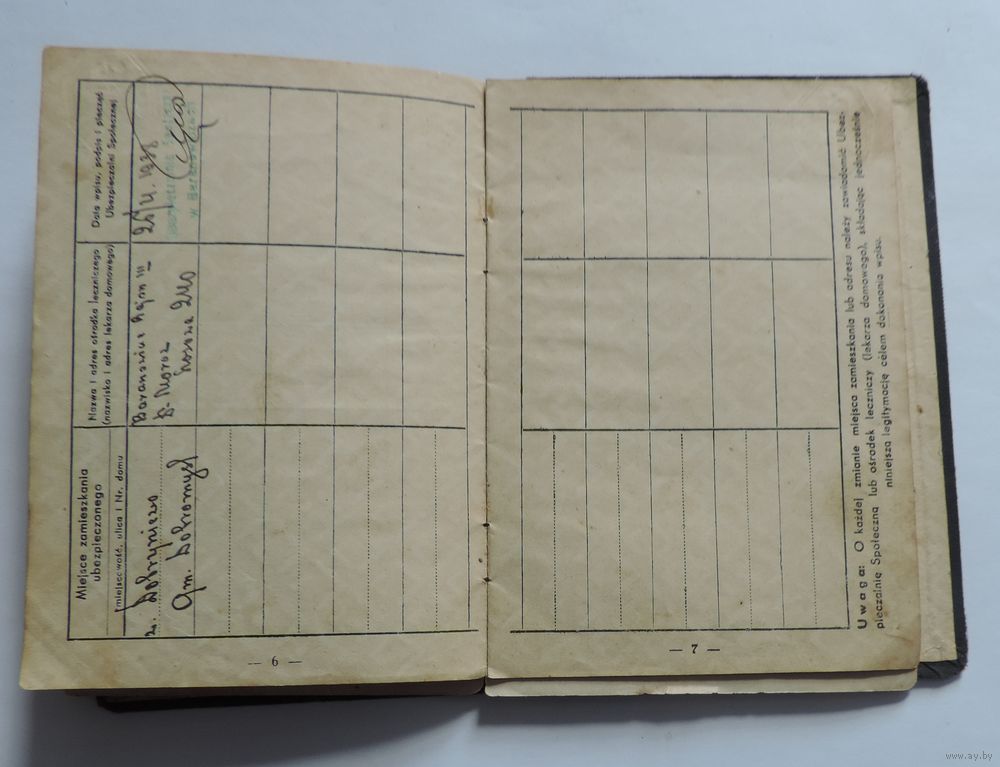 Miejsce zamieszkania
ubezpieczonego
(miejscowość, ulica i Nr. domu
Nazwa i adres ośrodka leczniczego
(nazwisko i adres lekarza domowego)
Data wpisu, podpis i pieczęć
Ubezpieczalni Społecznej
Gm. Dobromyśl
Baranowicze Rejon III
D. Moroz
1938
w Baranowiczach
— 6 —
Uwaga: O każdej zmianie miejsca zamieszkania lub adresu należy zawiadomić Ubez-
pieczalnię Społeczną lub ośrodek leczniczy (lekarza domowego), składając jednocześnie
niniejszą legitymację celem dokonania wpisu.
— 7 —
www.ay.by